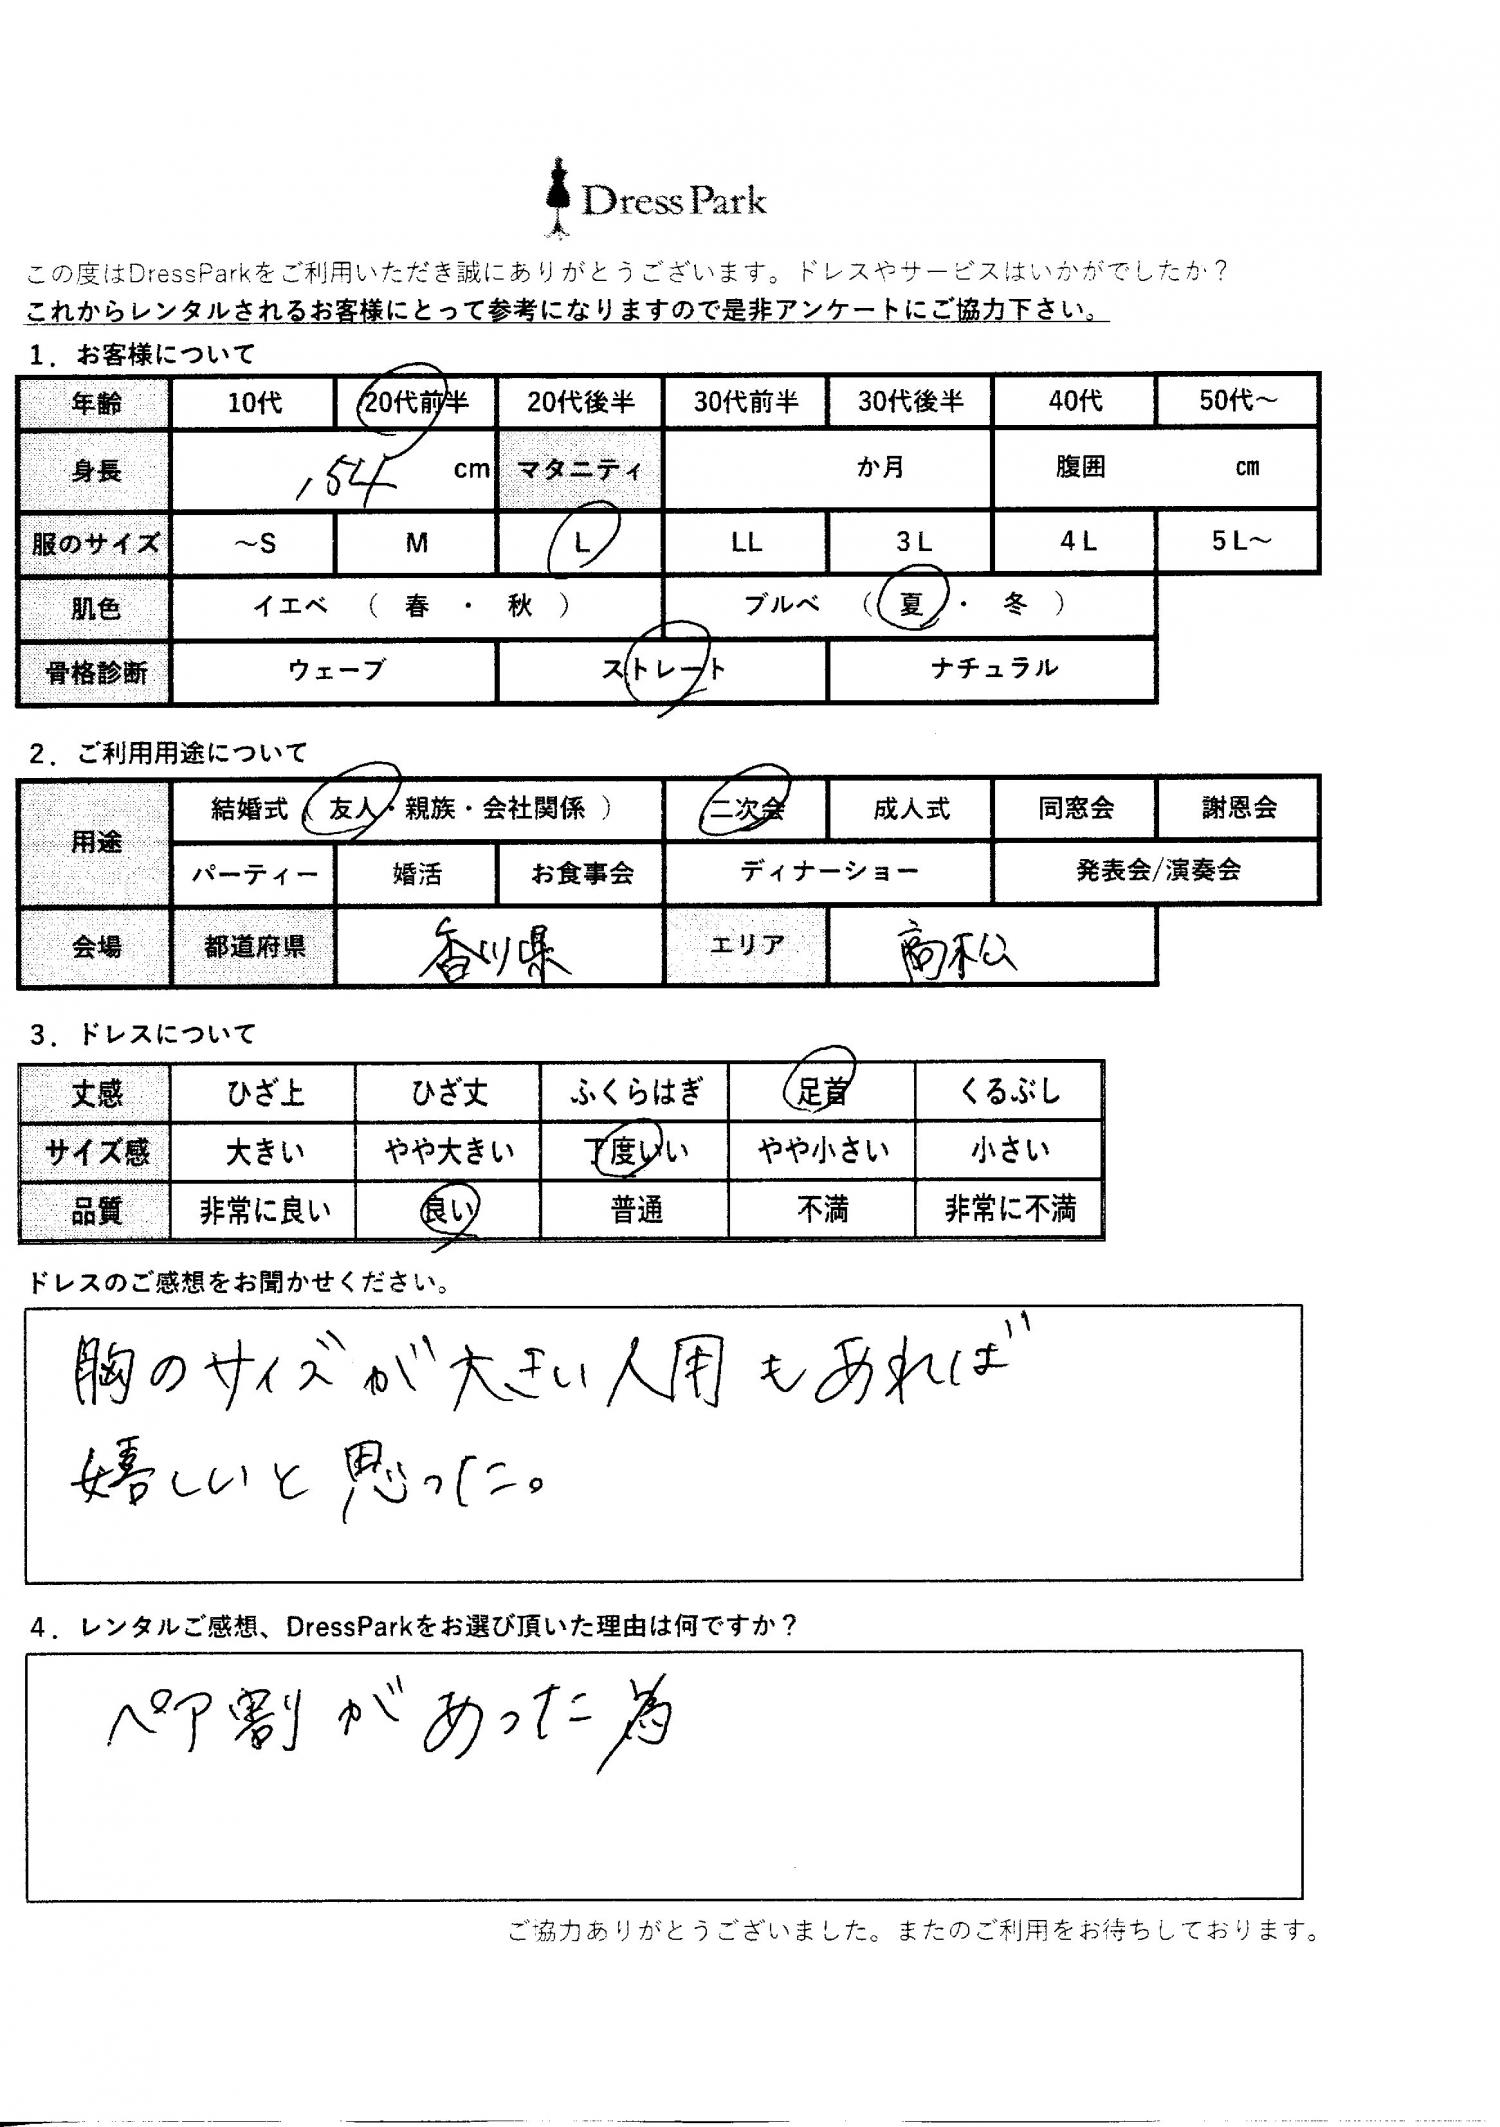 DressPark
この度はDressParkをご利用いただき誠にありがとうございます。ドレスやサービスはいかがでしたか？
これからレンタルされるお客様にとって参考になりますので是非アンケートにご協力下さい。
1．お客様について
年齢 10代 20代前半 20代後半 30代前半 30代後半 40代 50代～
身長 154 cm マタニティ か月 腹囲 cm
服のサイズ ～S M L LL 3L 4L 5L～
肌色 イエベ （ 春 ・ 秋 ） ブルベ （ 夏 ・ 冬 ）
骨格診断 ウェーブ ストレート ナチュラル
2．ご利用用途について
用途 結婚式（ 友人・親族・会社関係 ） 二次会 成人式 同窓会 謝恩会
パーティー 婚活 お食事会 ディナーショー 発表会/演奏会
会場 都道府県 香川県 エリア 高松
3．ドレスについて
丈感 ひざ上 ひざ丈 ふくらはぎ 足首 くるぶし
サイズ感 大きい やや大きい 丁度いい やや小さい 小さい
品質 非常に良い 良い 普通 不満 非常に不満
ドレスのご感想をお聞かせください。
胸のサイズが大きい人用もあれば
嬉しいと思った。
4．レンタルご感想、DressParkをお選び頂いた理由は何ですか？
ペア割があった為
ご協力ありがとうございました。またのご利用をお待ちしております。